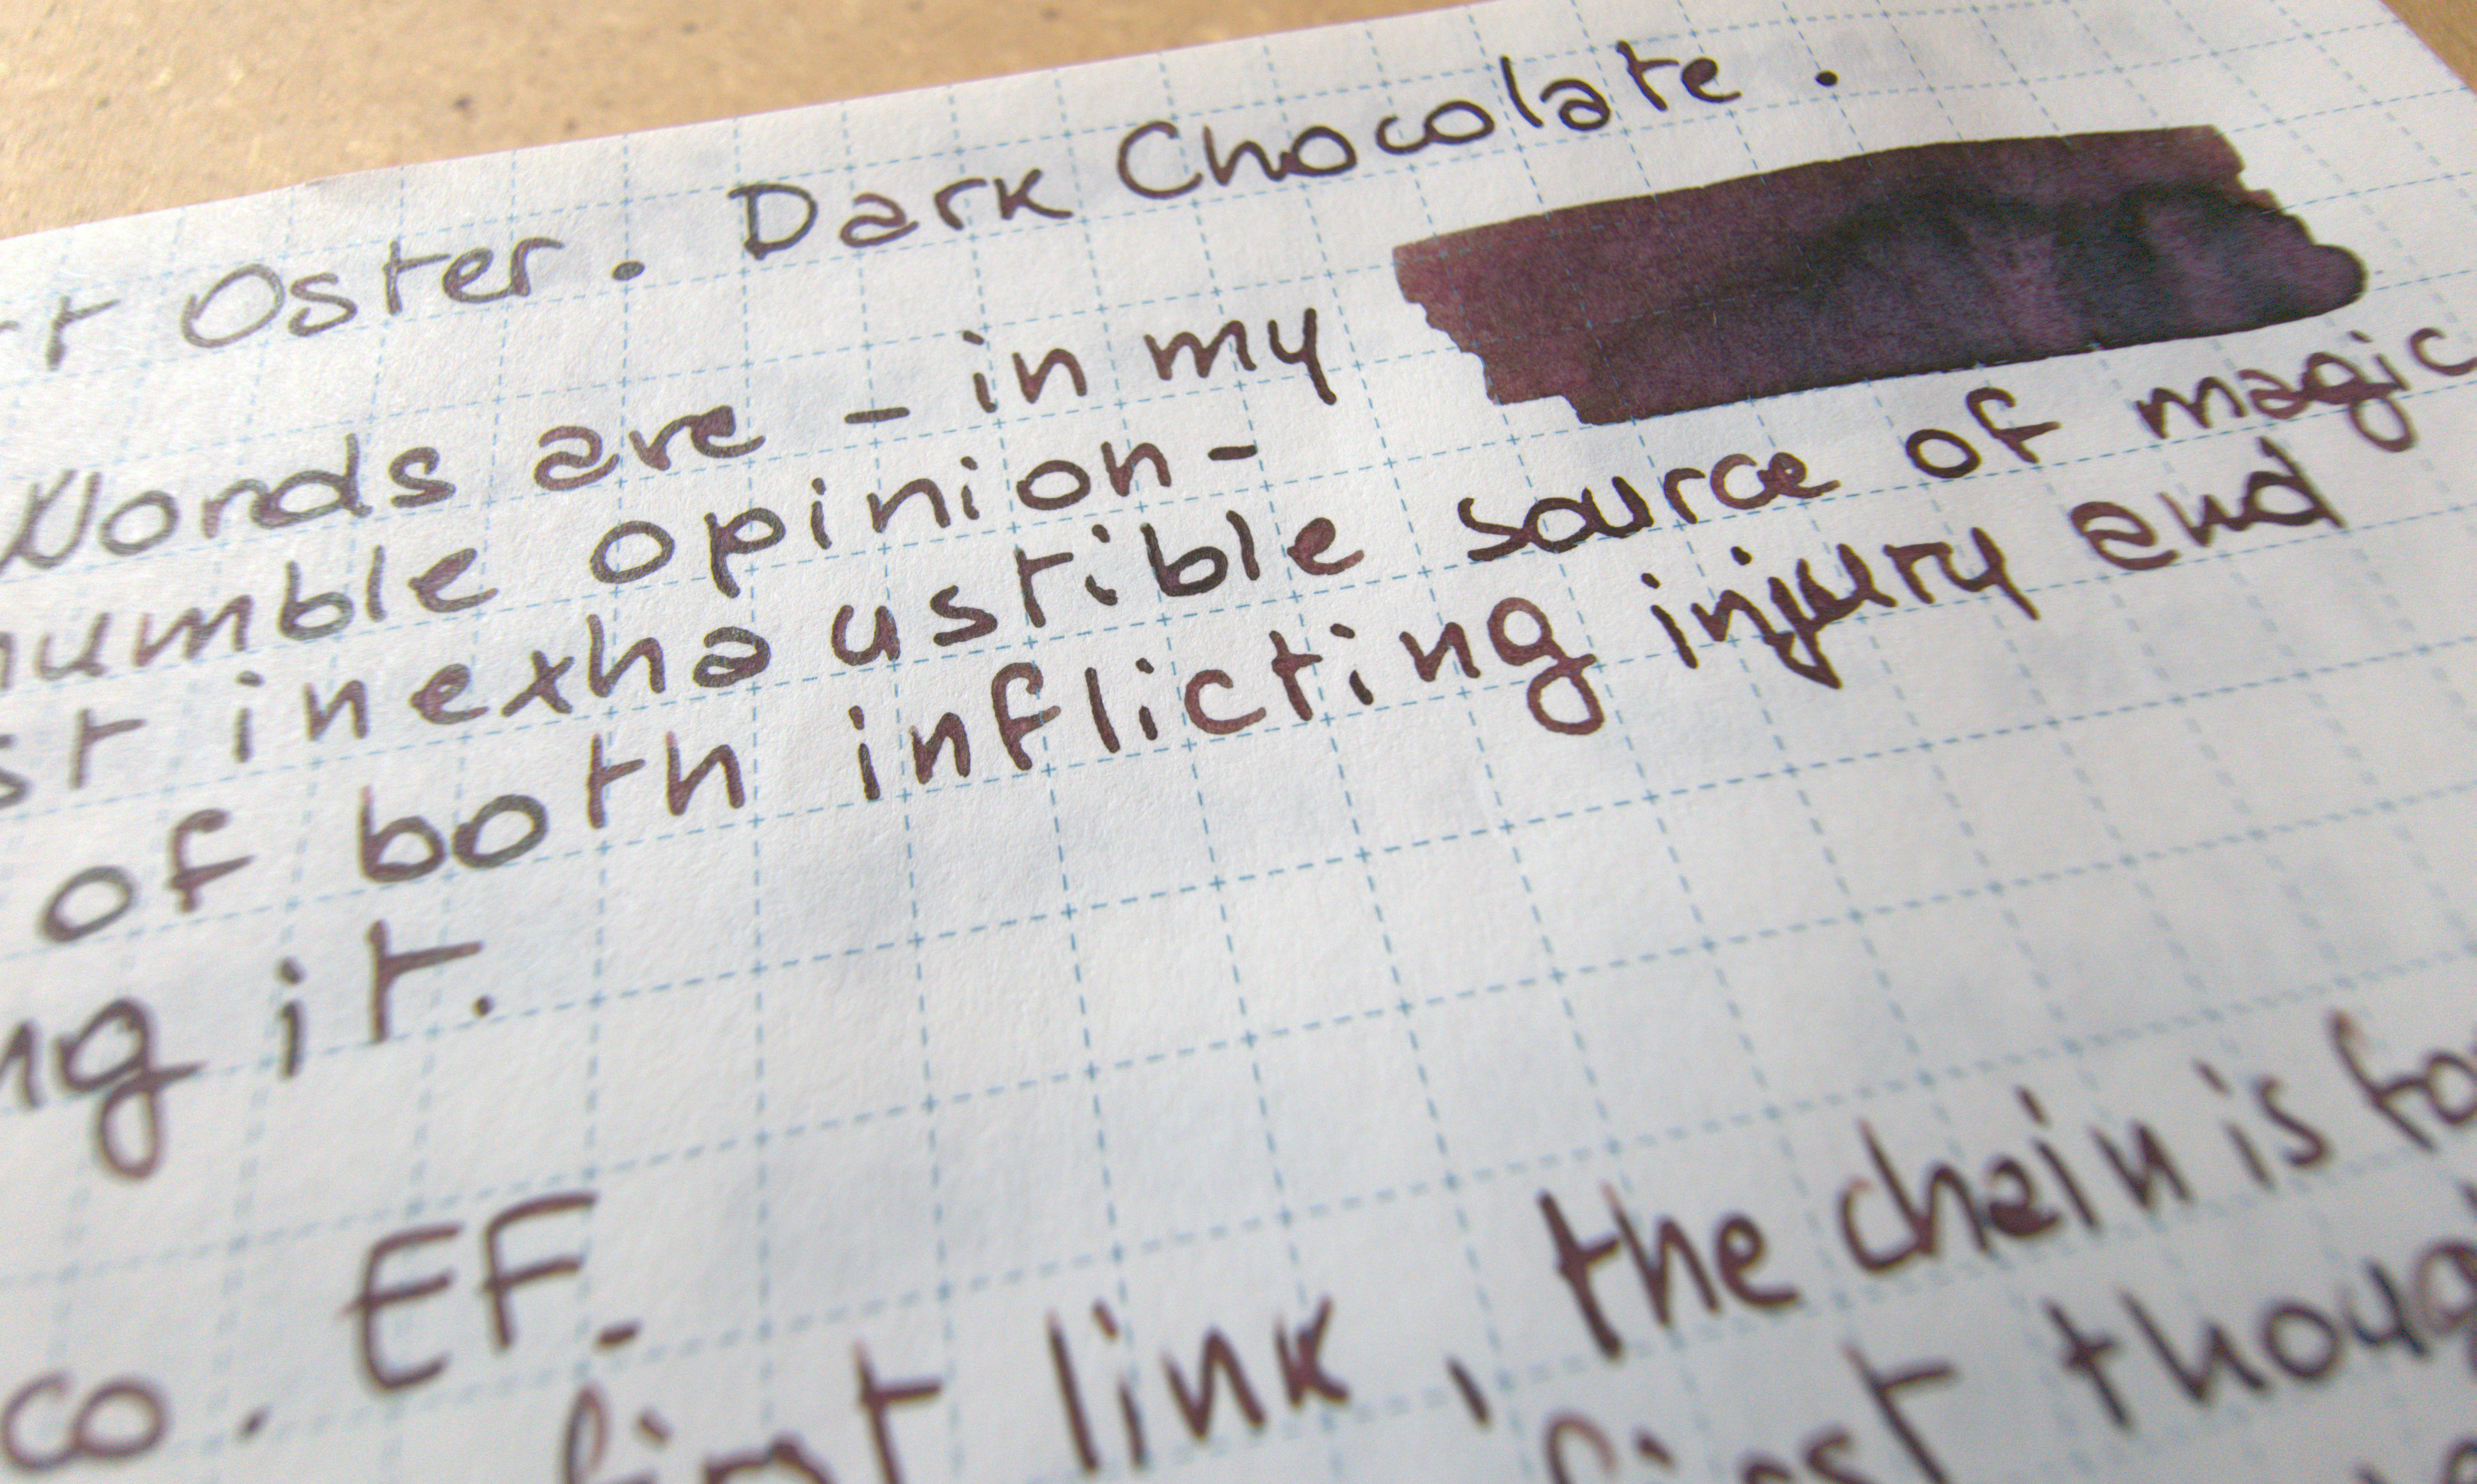 Oster. Dark Chocolate.
Words are - in my
humble opinion -
inexhaustible source of magic
of both inflicting injury and
it.
EF
first link, the chain is
first